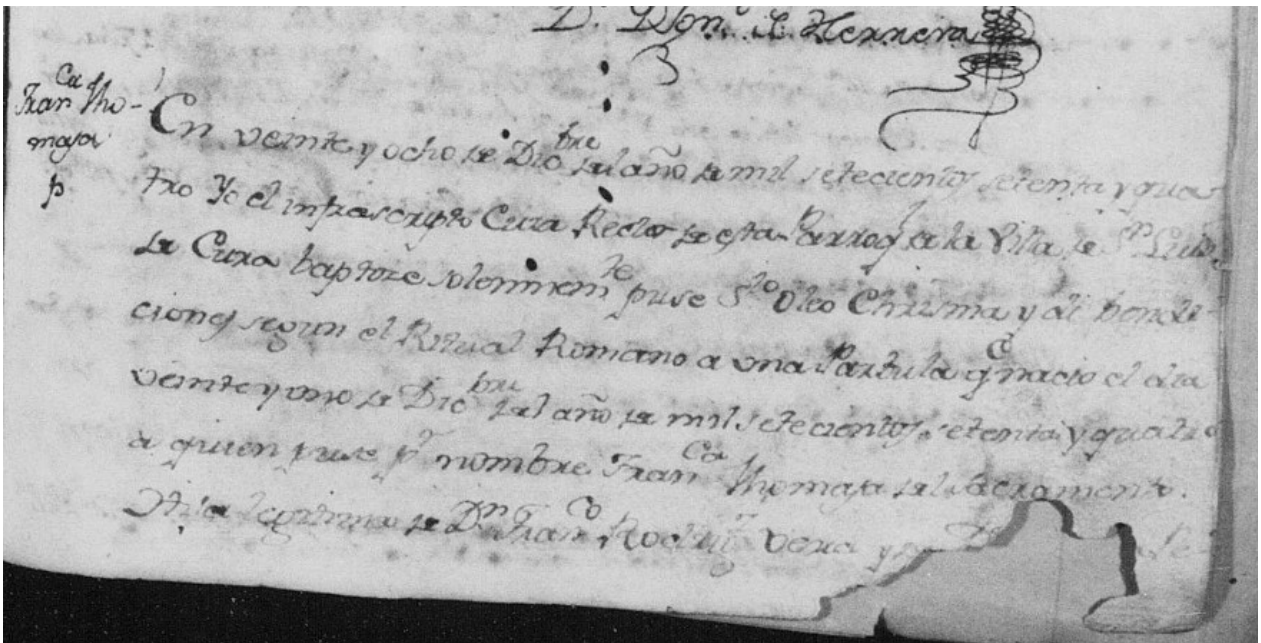 Dr. Domo. J. Herrera
Franca. Tho-
masa
p
En veinte y ocho de Dicbre. del año de mil setecientos setenta y qua
tro Yo el infrascripto Cura Rector de esta Parroql. de la Villa de Sn. Luis
de Cura baptize solemnemte. puse Sto. Oleo Chrisma y di bendi-
ciones segun el Ritual Romano a una Parbula q. nacio el dia
veinte y uno de Dicbre. del año de mil setecientos setenta y quatro
a quien puse pr. nombre Franca. Thomasa del Sacramento.
Hija legitima de Dn. Franco. Rodrigz. Vera y